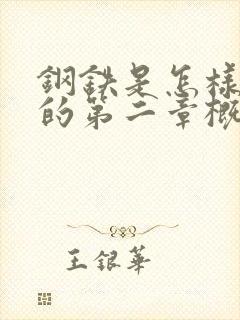 鋼鉄是怎樣
的第二章概
王銀華